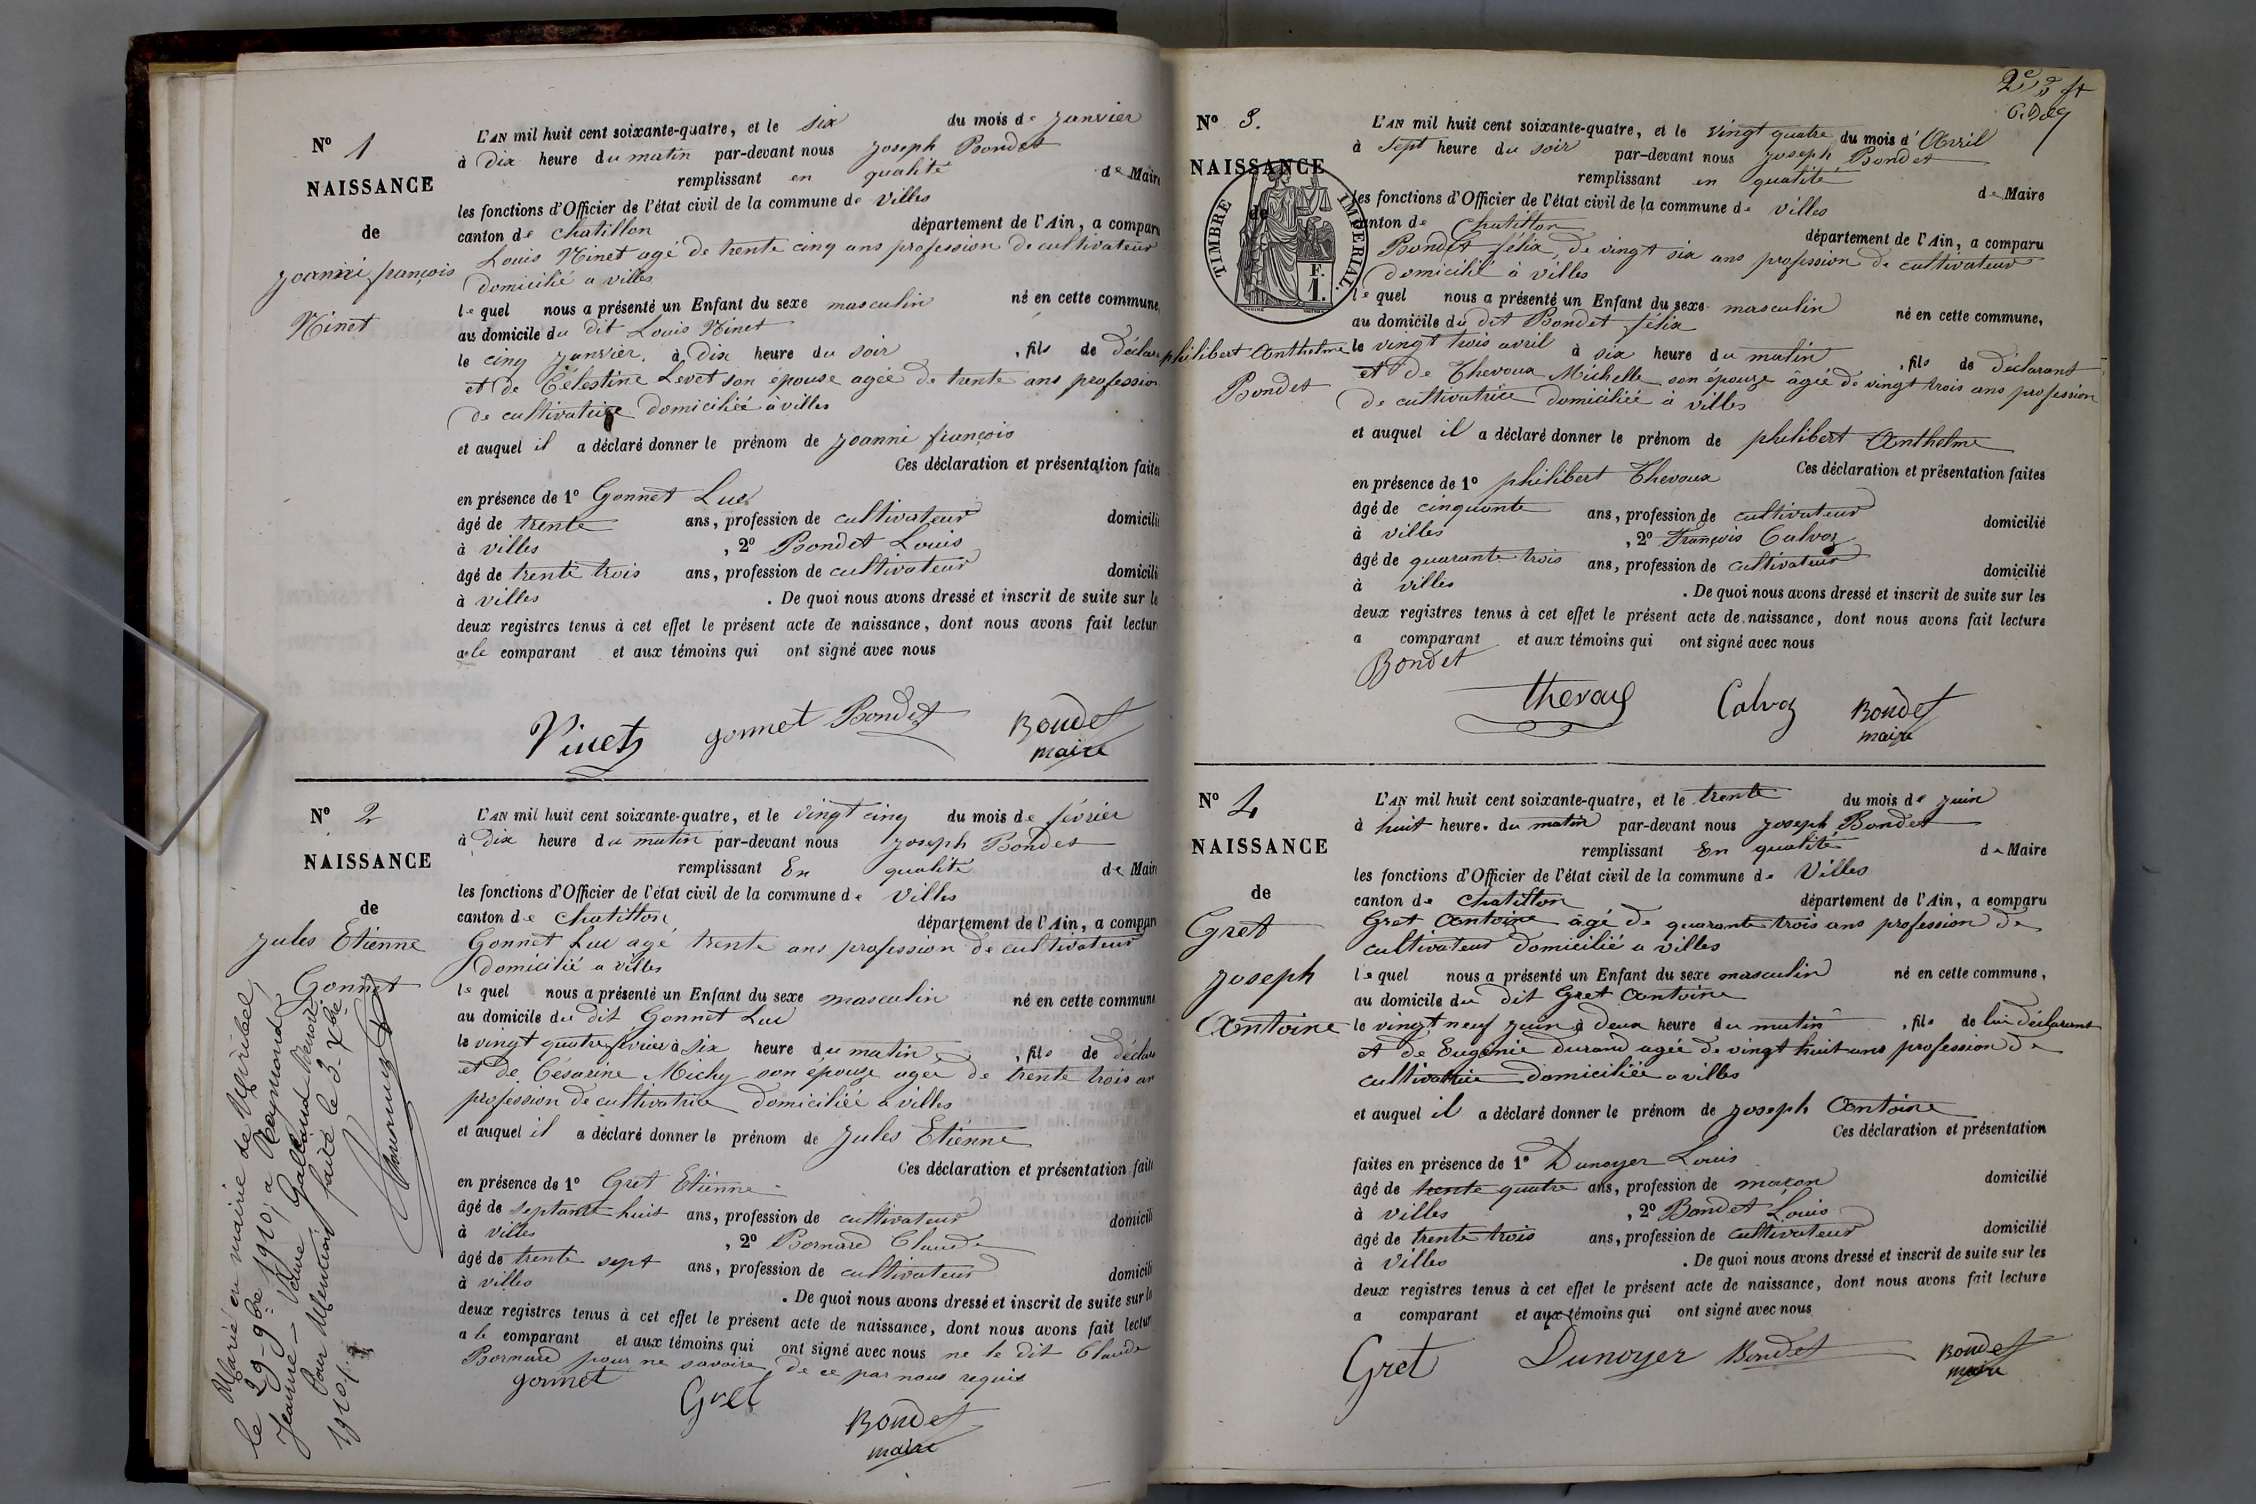 Nº 1
NAISSANCE
de
Joanni françois
Vinet
L'AN mil huit cent soixante-quatre, et le six du mois de Janvier
à Dix heure du matin par-devant nous Joseph Bondet
remplissant en qualité de Maire
les fonctions d'Officier de l'état civil de la commune de Villes
canton de Chatillon département de l'Ain, a comparu
Louis Vinet agé de trente cinq ans profession de cultivateur
domicilié a villes
lequel nous a présenté un Enfant du sexe masculin né en cette commune,
au domicile du dit Louis Vinet
le cinq Janvier, à Dix heure du soir, fils de déclara
et de Célestine Levet son épouse agée de trente ans profession
de cultivatrice domiciliée à villes
et auquel il a déclaré donner le prénom de Joanni françois
Ces déclaration et présentation faites
en présence de 1º Gonnet Luc
âgé de trente ans, profession de cultivateur domicilié
à villes, 2º Bondet Louis
âgé de trente trois ans, profession de cultivateur domicili
à villes. De quoi nous avons dressé et inscrit de suite sur le
deux registres tenus à cet effet le présent acte de naissance, dont nous avons fait lectur
a le comparant et aux témoins qui ont signé avec nous
Vinet gonnet Bondet Bondet
maire
Nº 2
NAISSANCE
de
Jules Etienne
Gonnet
Marié en mairie de Méribel,
le 29 9bre 1910, à Raymond
Jeanne Veuve Galland
Pour Mention faite le 3 Xbre
1910.
L'AN mil huit cent soixante-quatre, et le vingt cinq du mois de février
à Dix heure du matin par-devant nous Joseph Bondet
remplissant En qualité de Mair
les fonctions d'Officier de l'état civil de la commune de Villes
canton de Chatillon département de l'Ain, a comparu
Gonnet Luc agé trente ans profession de cultivateur
domicilié a villes
lequel nous a présenté un Enfant du sexe masculin né en cette commune
au domicile du dit Gonnet Luc
le vingt quatre février à six heure du matin, fils de déclar
et de Césarine Michy son épouze agee de trente trois an
profession de cultivatrice domiciliée a villes
et auquel il a déclaré donner le prénom de Jules Etienne
Ces déclaration et présentation faite
en présence de 1º Gret Etienne
âgé de septante huit ans, profession de cultivateur domicili
à villes, 2º Bornard Claude
âgé de trente sept ans, profession de cultivateur domicili
à villes. De quoi nous avons dressé et inscrit de suite sur le
deux registres tenus à cet effet le présent acte de naissance, dont nous avons fait lectur
a le comparant et aux témoins qui ont signé avec nous ne le dit Claude
Bornard pour ne savoire de ce par nous requis
gonnet Gret Bondet
maire
2e
Nº 3.
NAISSANCE
de
TIMBRE IMPERIAL.
F.
1.
philibert Anthelme
Bondet
L'AN mil huit cent soixante-quatre, et le vingt quatre du mois d'Avril
à sept heure du soir par-devant nous Joseph Bondet
remplissant en qualité de Maire
les fonctions d'Officier de l'état civil de la commune de villes
canton de Chatillon département de l'Ain, a comparu
Bondet félix, de vingt six ans profession de cultivateur
domicilié à villes
lequel nous a présenté un Enfant du sexe masculin né en cette commune,
au domicile du dit Bondet félix
le vingt trois avril à six heure du matin, fils de déclarant
et de Thevoux Michelle son épouze âgée de vingt trois ans profession
de cultivatrice domiciliée à villes
et auquel il a déclaré donner le prénom de philibert Anthelme
Ces déclaration et présentation faites
en présence de 1º philibert Thevoux
âgé de cinquante ans, profession de cultivateur domicilié
à villes, 2º François Calvoz
âgé de quarante trois ans, profession de cultivateur domicilié
à villes. De quoi nous avons dressé et inscrit de suite sur les
deux registres tenus à cet effet le présent acte de naissance, dont nous avons fait lecture
a comparant et aux témoins qui ont signé avec nous
Bondet
Calvoz Bondet
maire
Nº 4
NAISSANCE
de
Gret
Joseph
Antoine
L'AN mil huit cent soixante-quatre, et le trente du mois de Juin
à huit heure du matin par-devant nous Joseph Bondet
remplissant En qualité de Maire
les fonctions d'Officier de l'état civil de la commune de Villes
canton de Chatillon département de l'Ain, a comparu
Gret Antoine âgé de quarante trois ans profession de
cultivateur domicilié a villes
lequel nous a présenté un Enfant du sexe masculin né en cette commune,
au domicile du dit Gret Antoine
le vingt neuf Juin à deux heure du matin, fils de lui déclarant
et de Eugénie durand agée de vingt huit ans profession de
cultivatrice domiciliée a villes
et auquel il a déclaré donner le prénom de Joseph Antoine
Ces déclaration et présentation
faites en présence de 1º Dunoyer Louis
âgé de trente quatre ans, profession de maçon domicilié
à villes, 2º Bondet Louis
âgé de trente trois ans, profession de cultivateur domicilié
à Villes. De quoi nous avons dressé et inscrit de suite sur les
deux registres tenus à cet effet le présent acte de naissance, dont nous avons fait lecture
a comparant et aux témoins qui ont signé avec nous
Gret Dunoyer Bondet Bondet
maire